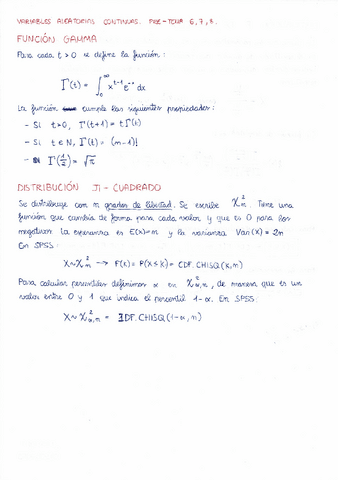 VARIABLES ALEATORIAS CONTINUAS. PRE-TEMA 6, 7, 8.
FUNCIÓN GAMMA
Para cada t > 0 se define la función:
Γ(t) = ∫₀^∞ x^(t-1) e^(-x) dx
La función cumple las siguientes propiedades:
- Si t>0, Γ(t+1) = tΓ(t)
- Si t ∈ N, Γ(t) = (m-1)!
- Γ(1/2) = √π
DISTRIBUCIÓN JI-CUADRADO
Se distribuye con n grados de libertad. Se escribe χ²ₙ. Tiene una
función que cambia de forma para cada valor y que es 0 para los
negativos. La esperanza es E(X)=n y la varianza Var(X) = 2n
En SPSS:
X~χ²ₙ → F(x) = P(X≤x) = CDF.CHISQ(x,n)
Para calcular percentiles definimos α en χ²α,n, de manera que es un
valor entre 0 y 1 que indica el percentil 1-α. En SPSS:
X~χ²α,n = IDF.CHISQ(1-α, n)